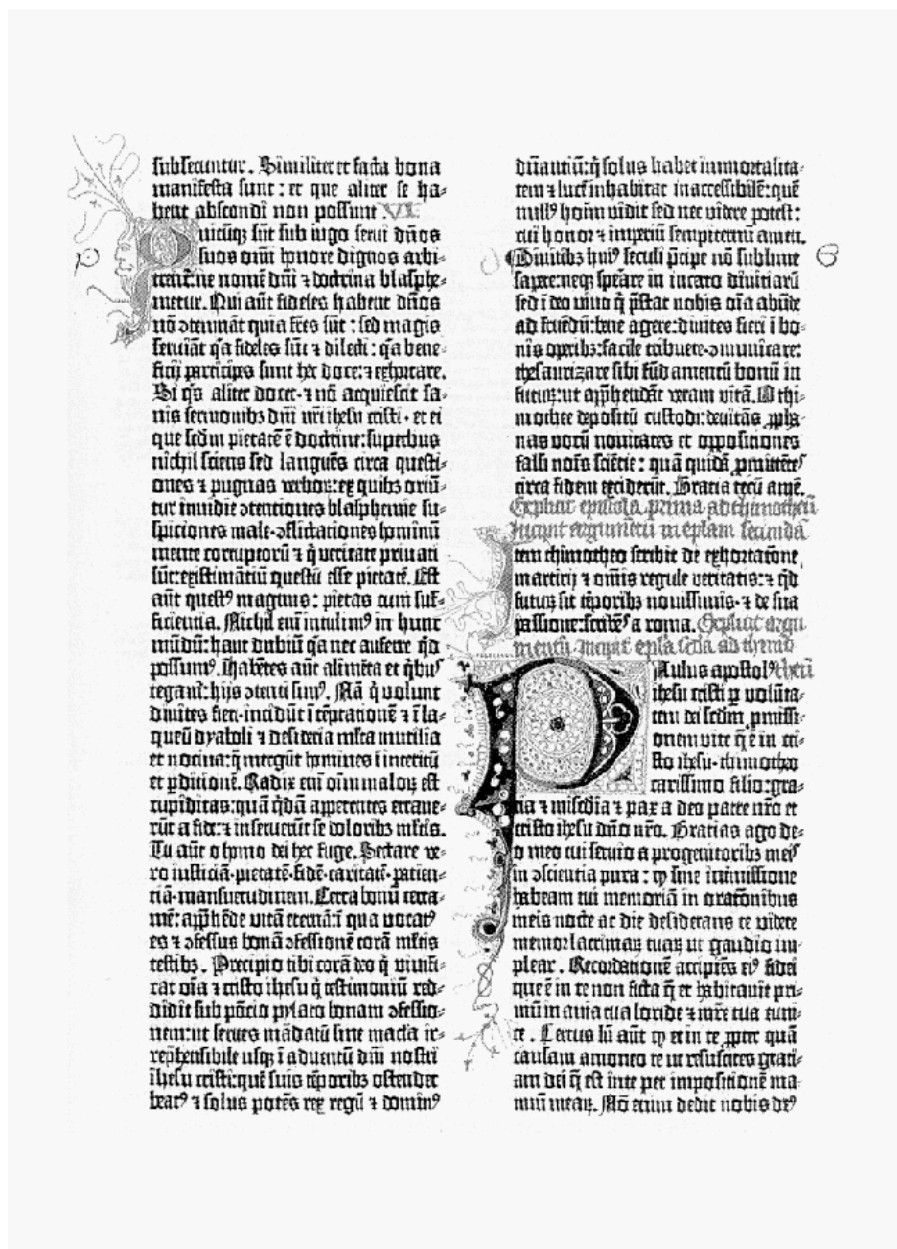 subsecuntur. Similiter et facta bona
manifesta sunt: et que aliter se ha-
bent abscondi non possunt. VI
Quicūq; sūt sub iugo serui dn̄os
suos om̄i honore dignos arbi-
trent̄: ne nomē dn̄i ⁊ doctrina blasphe-
metur. Qui aūt fideles habent dn̄os
nō ꝯtemnāt quia fr̄es sūt: sed magis
seruiāt q̄a fideles sūt ⁊ dilecti: q̄a bene-
ficij participes sunt hec doce: ⁊ exhortare.
Si q̄s aliter docet· ⁊ nō acquiescit sa-
nis sermonibꝫ dn̄i nr̄i ihesu cristi· et ei
que sc̄dm pietatē ē doctrine: superbus
nichil sciens sed languēs circa questi-
ones ⁊ pugnas verboꝝ: ex quibꝫ oriū-
tur inuidie ꝯtentiones blasphemie su-
spiciones male· ꝯflictationes hominū
mente corruptorū ⁊ q̄ veritate priuati
sūt: existimātiū questū esse pietatē. Est
aūt questꝰ magnus: pietas cum suf-
ficientia. Nichil em̄ intulimꝰ in hunc
mūdū: haut dubiū q̄a nec auferre q̄d
possumꝰ. Habētes aūt alimēta et q̄bus
tegam̄: hijs ꝯtenti simꝰ. Nā q̄ volunt
diuites fieri· incidūt ī tēptationē ⁊ ī la-
queū dyaboli ⁊ desideria ml̄ta inutilia
et nociua: q̄ mergūt homines ī interitū
et ꝑditionē. Radix em̄ oīm maloꝝ est
cupiditas: quā q̄dā appetentes errauē-
rūt a fide: ⁊ inseruerūt se doloribꝫ ml̄tis.
Tu aūt o homo dei hec fuge. Sectare ve-
ro iusticiā· pietatē· fidē· caritatē· patien-
tiā· mansuetudinem. Certa bonū certa-
mē: app̄hēde vitā eternā: ī qua vocatꝰ
es ⁊ ꝯfessus bonā ꝯfessionē corā ml̄tis
testibꝫ. Precipio tibi corā deo q̄ viuifi-
cat oīa ⁊ cristo ihesu q̄ testimoniū red-
didit sub pōcio pylato bonam ꝯfessio-
nem: ut serues mādatū sine macl̄a ir-
rephensibile usq; ī aduentū dn̄i nostri
ihesu cristi: quē suis tēporibꝫ ostendet
beatꝰ ⁊ solus potēs rex regū ⁊ dominꝰ
dn̄antiū: q̄ solus habet immortalita-
tem ⁊ lucē inhabitat inaccessibilē: quē
nullꝰ hoīm vidit sed nec videre potest:
cui honor ⁊ imperiū sempiternū amen.
Diuitibꝫ huiꝰ seculi p̄cipe nō sublime
sapere: neq; sperare in incerto diuitiarū
sed ī deo viuo q̄ p̄stat nobis oīa abūde
ad fruendū: bene agere: diuites fieri ī bo-
nis operibꝫ: facile tribuere· ꝯmunicare:
thesaurizare sibi fūd amentū bonū in
futuꝝ: ut app̄hendāt veram vitā. O thi-
mothee depositū custodi: deuitās ꝓpha-
nas vocū nouitates et oppositiones
falsi nois sciētie: quā quidā promittētes
circa fidem exciderūt. Gratia tecū amē.
Explicit epistola prima ad thimotheū
Incipit argumentū in eplam secundā
Item thimotheo scribit de exhortatōne
martirij ⁊ omīs regule veritatis: ⁊ q̄d
futuꝝ sit tēporibꝫ nouissimis· ⁊ de sua
passione: scribēs a roma. Explicit argu
mentū incipit epla scd̄a ad thimo
theū
Paulus apostolꝰ
ihesu cristi ꝑ volūta-
tem dei sc̄dm ꝓmissi-
onem vite q̄ ē in cri-
sto ihesu· thimotheo
carissimo filio: gra-
tia ⁊ mis̄dia ⁊ pax a deo patre nr̄o et
cristo ihesu dn̄o nr̄o. Gratias ago de-
o meo cui seruio a progenitoribꝫ meis
in ꝯscientia pura: ꝙ sine intmissione
habeam tui memoriā in oratōnibus
meis nocte ac die desiderans te videre
memor lacrimaꝝ tuaꝝ ut gaudio im-
plear. Recordationē accipiēs eiꝰ fidei
que ē in te non ficta q̄ et habitauit pri-
mū in auia tua loride ⁊ mr̄e tua euni-
ce. Certus sū aūt ꝙ et in te. ꝓpter quā
causam amoneo te ut resuscites grati-
am dei q̄ est in te per impositionē ma-
nuū meaꝝ. Nō enim dedit nobis deꝰ